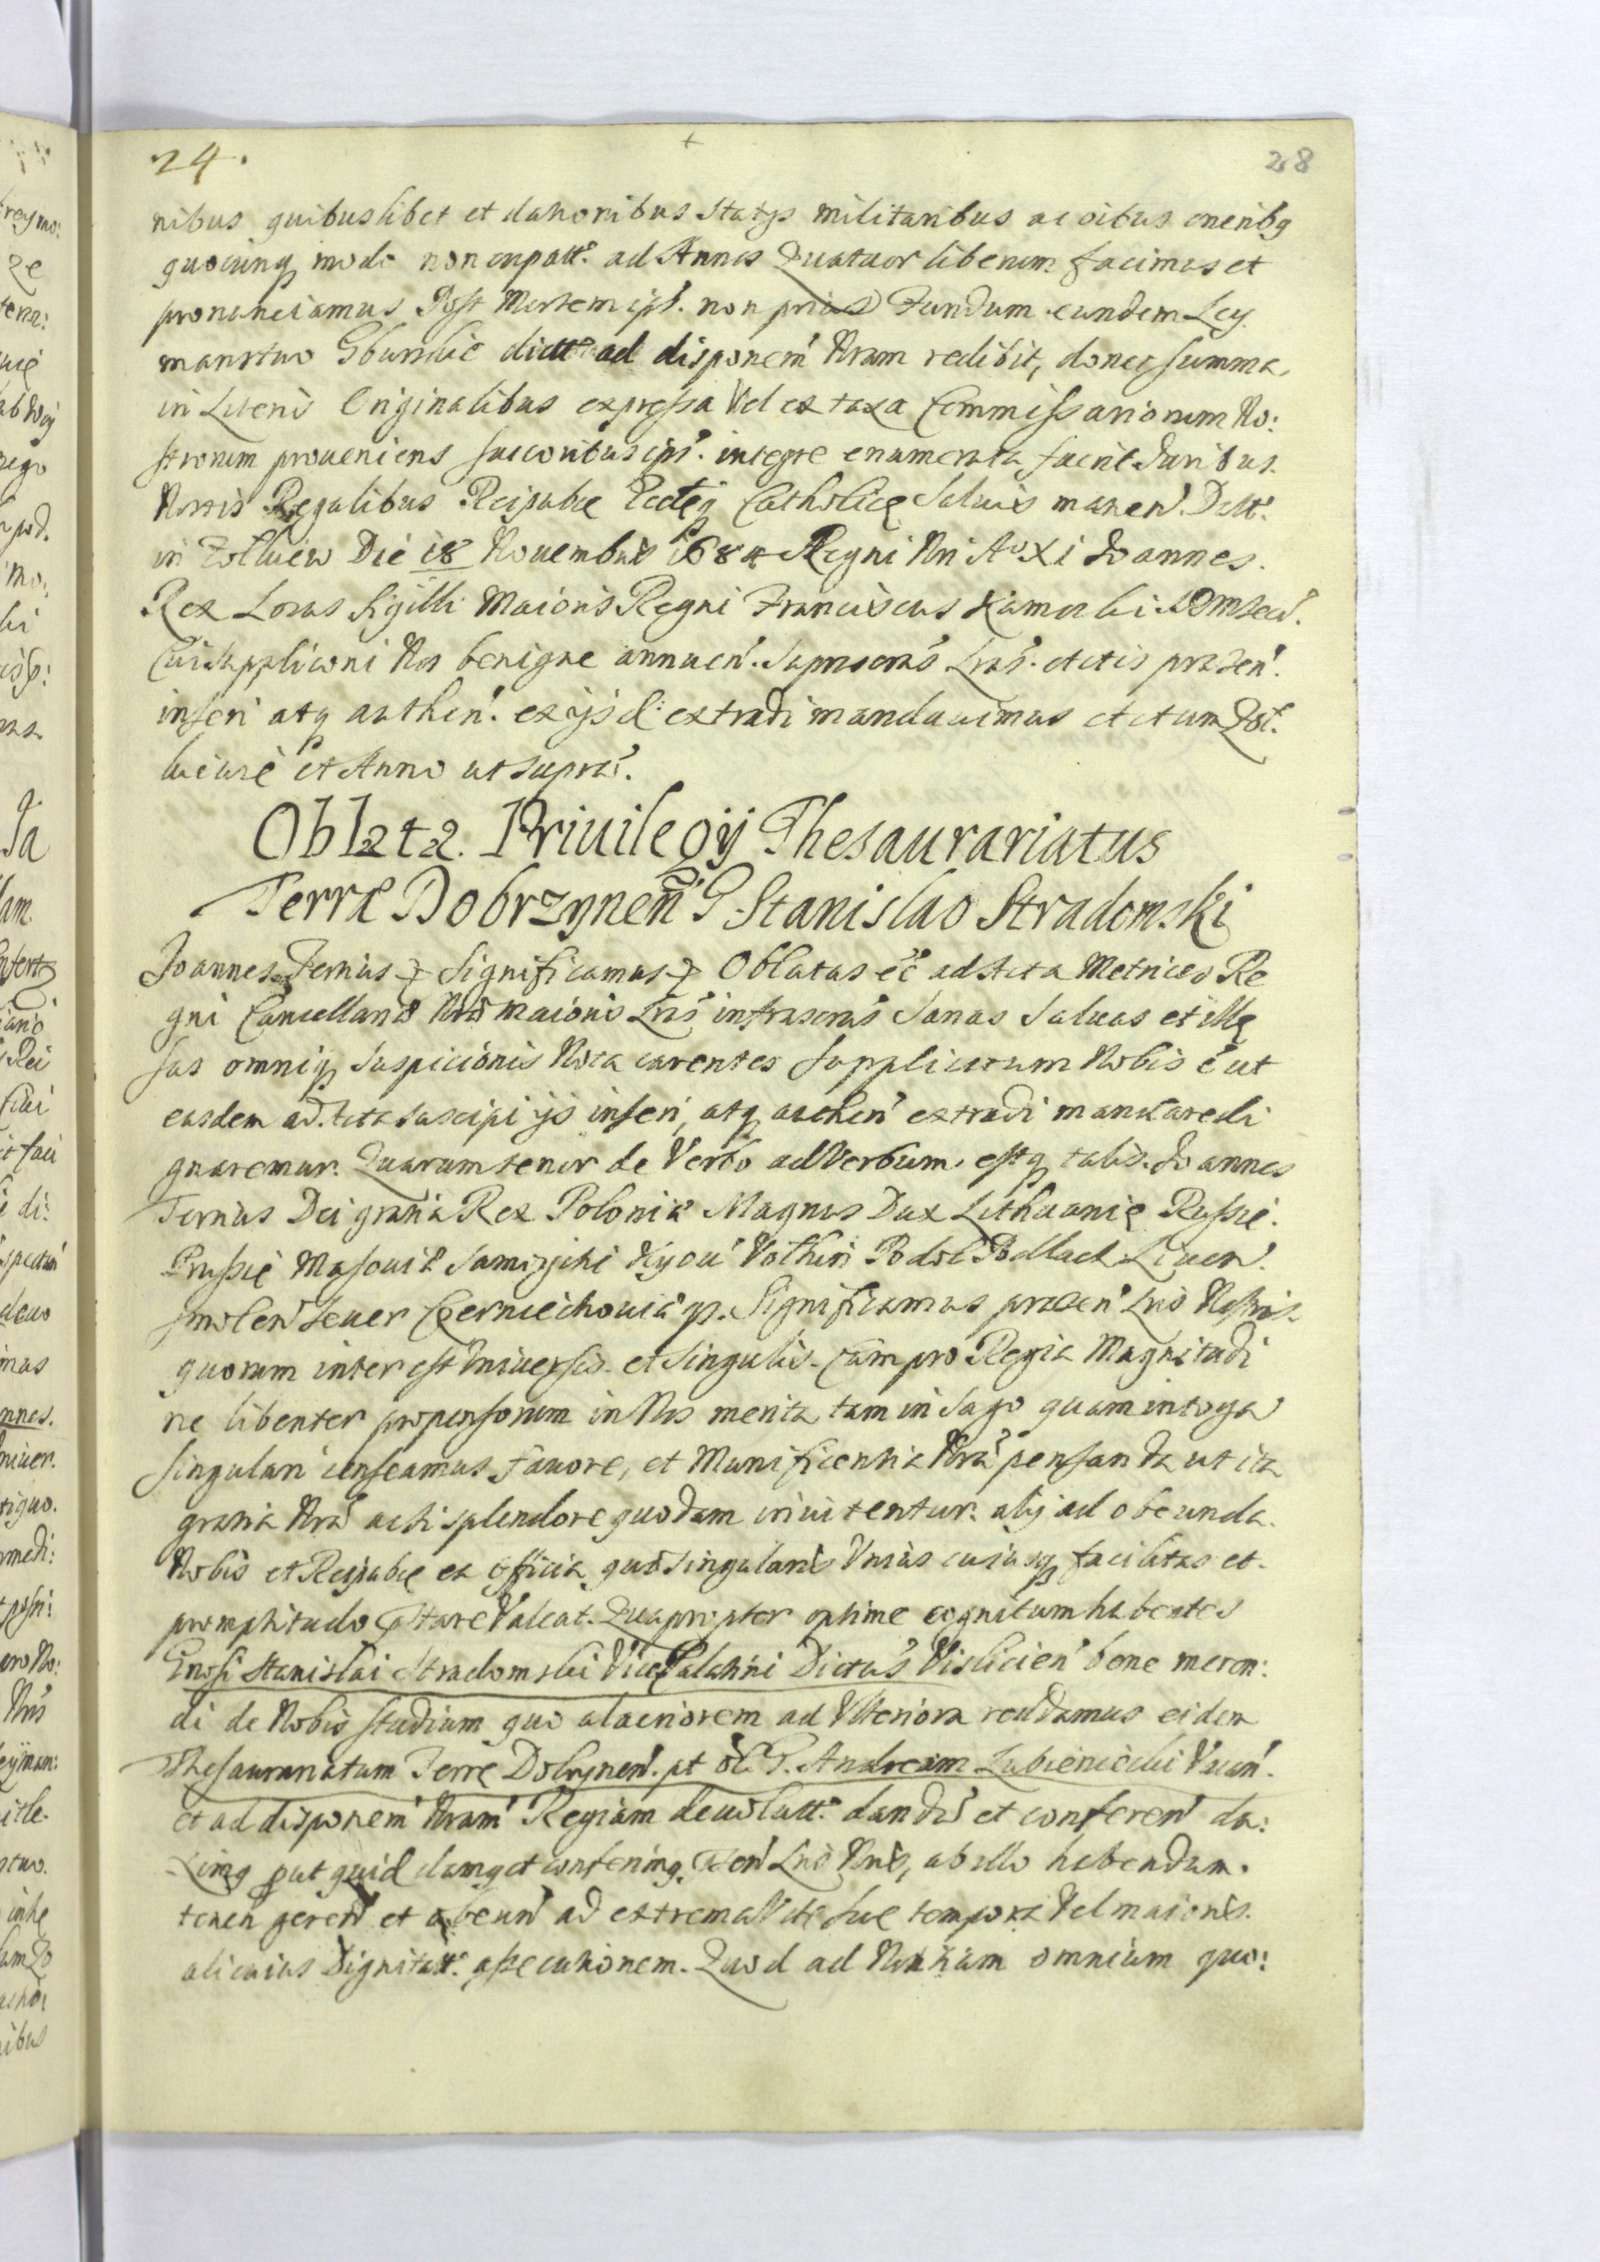 24.
28
nibus quibuslibet et dationibus Statys militaribus ac oibus oneribq
quocunq modo non cupatt. ad Annos Quatuor liberum facimus et
pronunciamus Post Mortem ips. non prius Fundum eundem Ley
manstwo Gburskie dictt ad disponem Nram redibit, donec summa
in Literis Originalibus expressa Vel ex taxa Commissariorum No:
strorum proueniens succoribus ips. integre enumerata fuerit Juribus
Nostris Regalibus Reipubce Ecclęq Catholicę Saluis manen. Datt.
in Zolkiew Die 18 Nouembris 1684 Regni Nri Ao XI Joannes
Rex Locus Sigilli Maioris Regni Franciscus
Cui Supplicaoni Nos benigne annuen. Suprascras Lras. Actis praesen.
inseri atq authen. ex ijs d: extradi mandauimus Actum Zol.
kiewię et Anno ut supra.
Oblata. Priuilegij Thesaurariatus
Terrae Dobrzynen G Stanislao Stradomski
Joannes Tertius Significamus Oblatas eē ad Acta Metrices Re
gni Cancellariae Nrae maioris Lras infrascras Sanas Saluas et illę
sas omniq Suspicionis Nota carentes Supplicatum Nobis ē ut
easdem ad Acta suscipi ijs inseri, atq authen extradi mandare di
gnaremur. Quarum tenor de Verbo ad Verbum, estq talis. Joannes
Tertius Dei gratia Rex Poloniae Magnus Dux Lithuanię Russię.
Prussię Masouiae Samogitię Kijou Volhin Podol Podlach Liuon.
Smolen Seuer Czerniechouiaeq. Significamus praesen Lris Nostris
quorum interest Vniuersis et Singulis. Cum pro Regia Magnitudi
ne libenter propensorum in Nos merita tam in Sago quam in toga
singulari censeamus fauore, et Munificentia Nra pensanda ut ita
gratia Nra acti splendore quodam inuitentur. alij ad obeunda.
Nobis et Reipubce ea officia, quae singularis Vnius cuiusq facilitas et
promptitudo pstare Valeat. Quapropter optime cognitum habentes
Gnosi Stanislai Stradomski Vice Palatini Dictus Vislicien bene meren:
di de Nobis studium quo alacriorem ad Vlteriora reddamus eidem
Thesaurariatum Terrę Dobrynen. pt ol. G. Andream Lubieniecki Vacan.
et ad disponem Nram Regiam deuolutt. dandu et conferen du:
ximq put quid damq et conferimq. Psen Lris Nris, ab illo habendum.
tenen geren et obeun ad extrema Vitę suę tempora Vel maioris
alicuius Dignitatt. assecutionem. Quod ad Notitiam omnium quo: